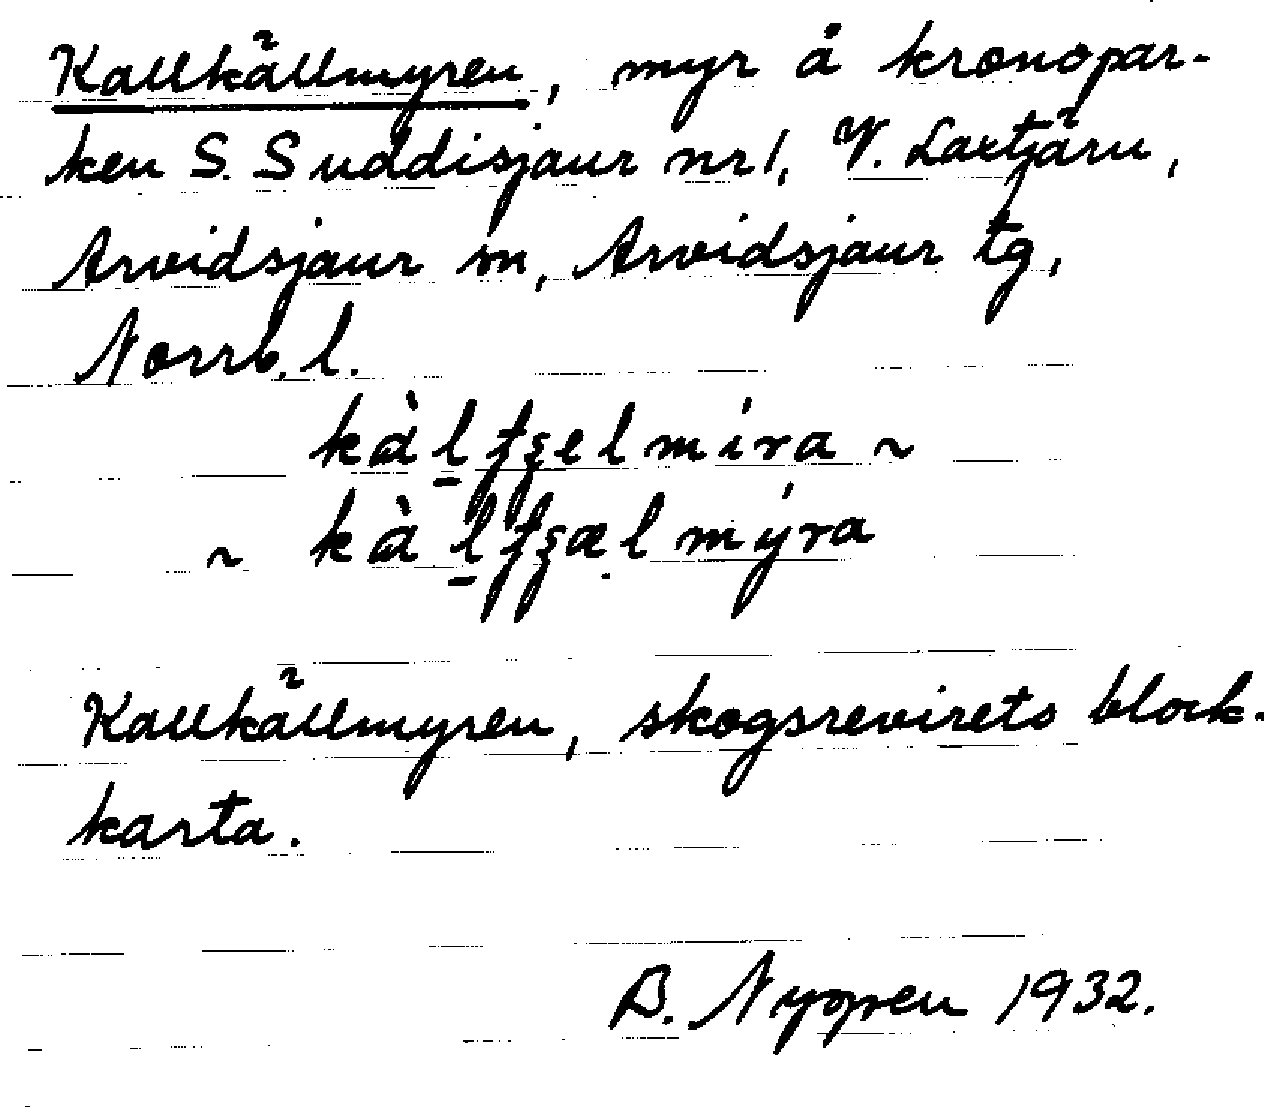 Kallkällmyren, myr å kronopar-
ken S. Suddisjaur nr 1, V. Laxtjärn,
Arvidsjaur sn, Arvidsjaur tg,
Norrb. l.
kàl̠
~ kà
Kallkällmyren, skogsrevirets block-
karta.
B. Nygren 1932.